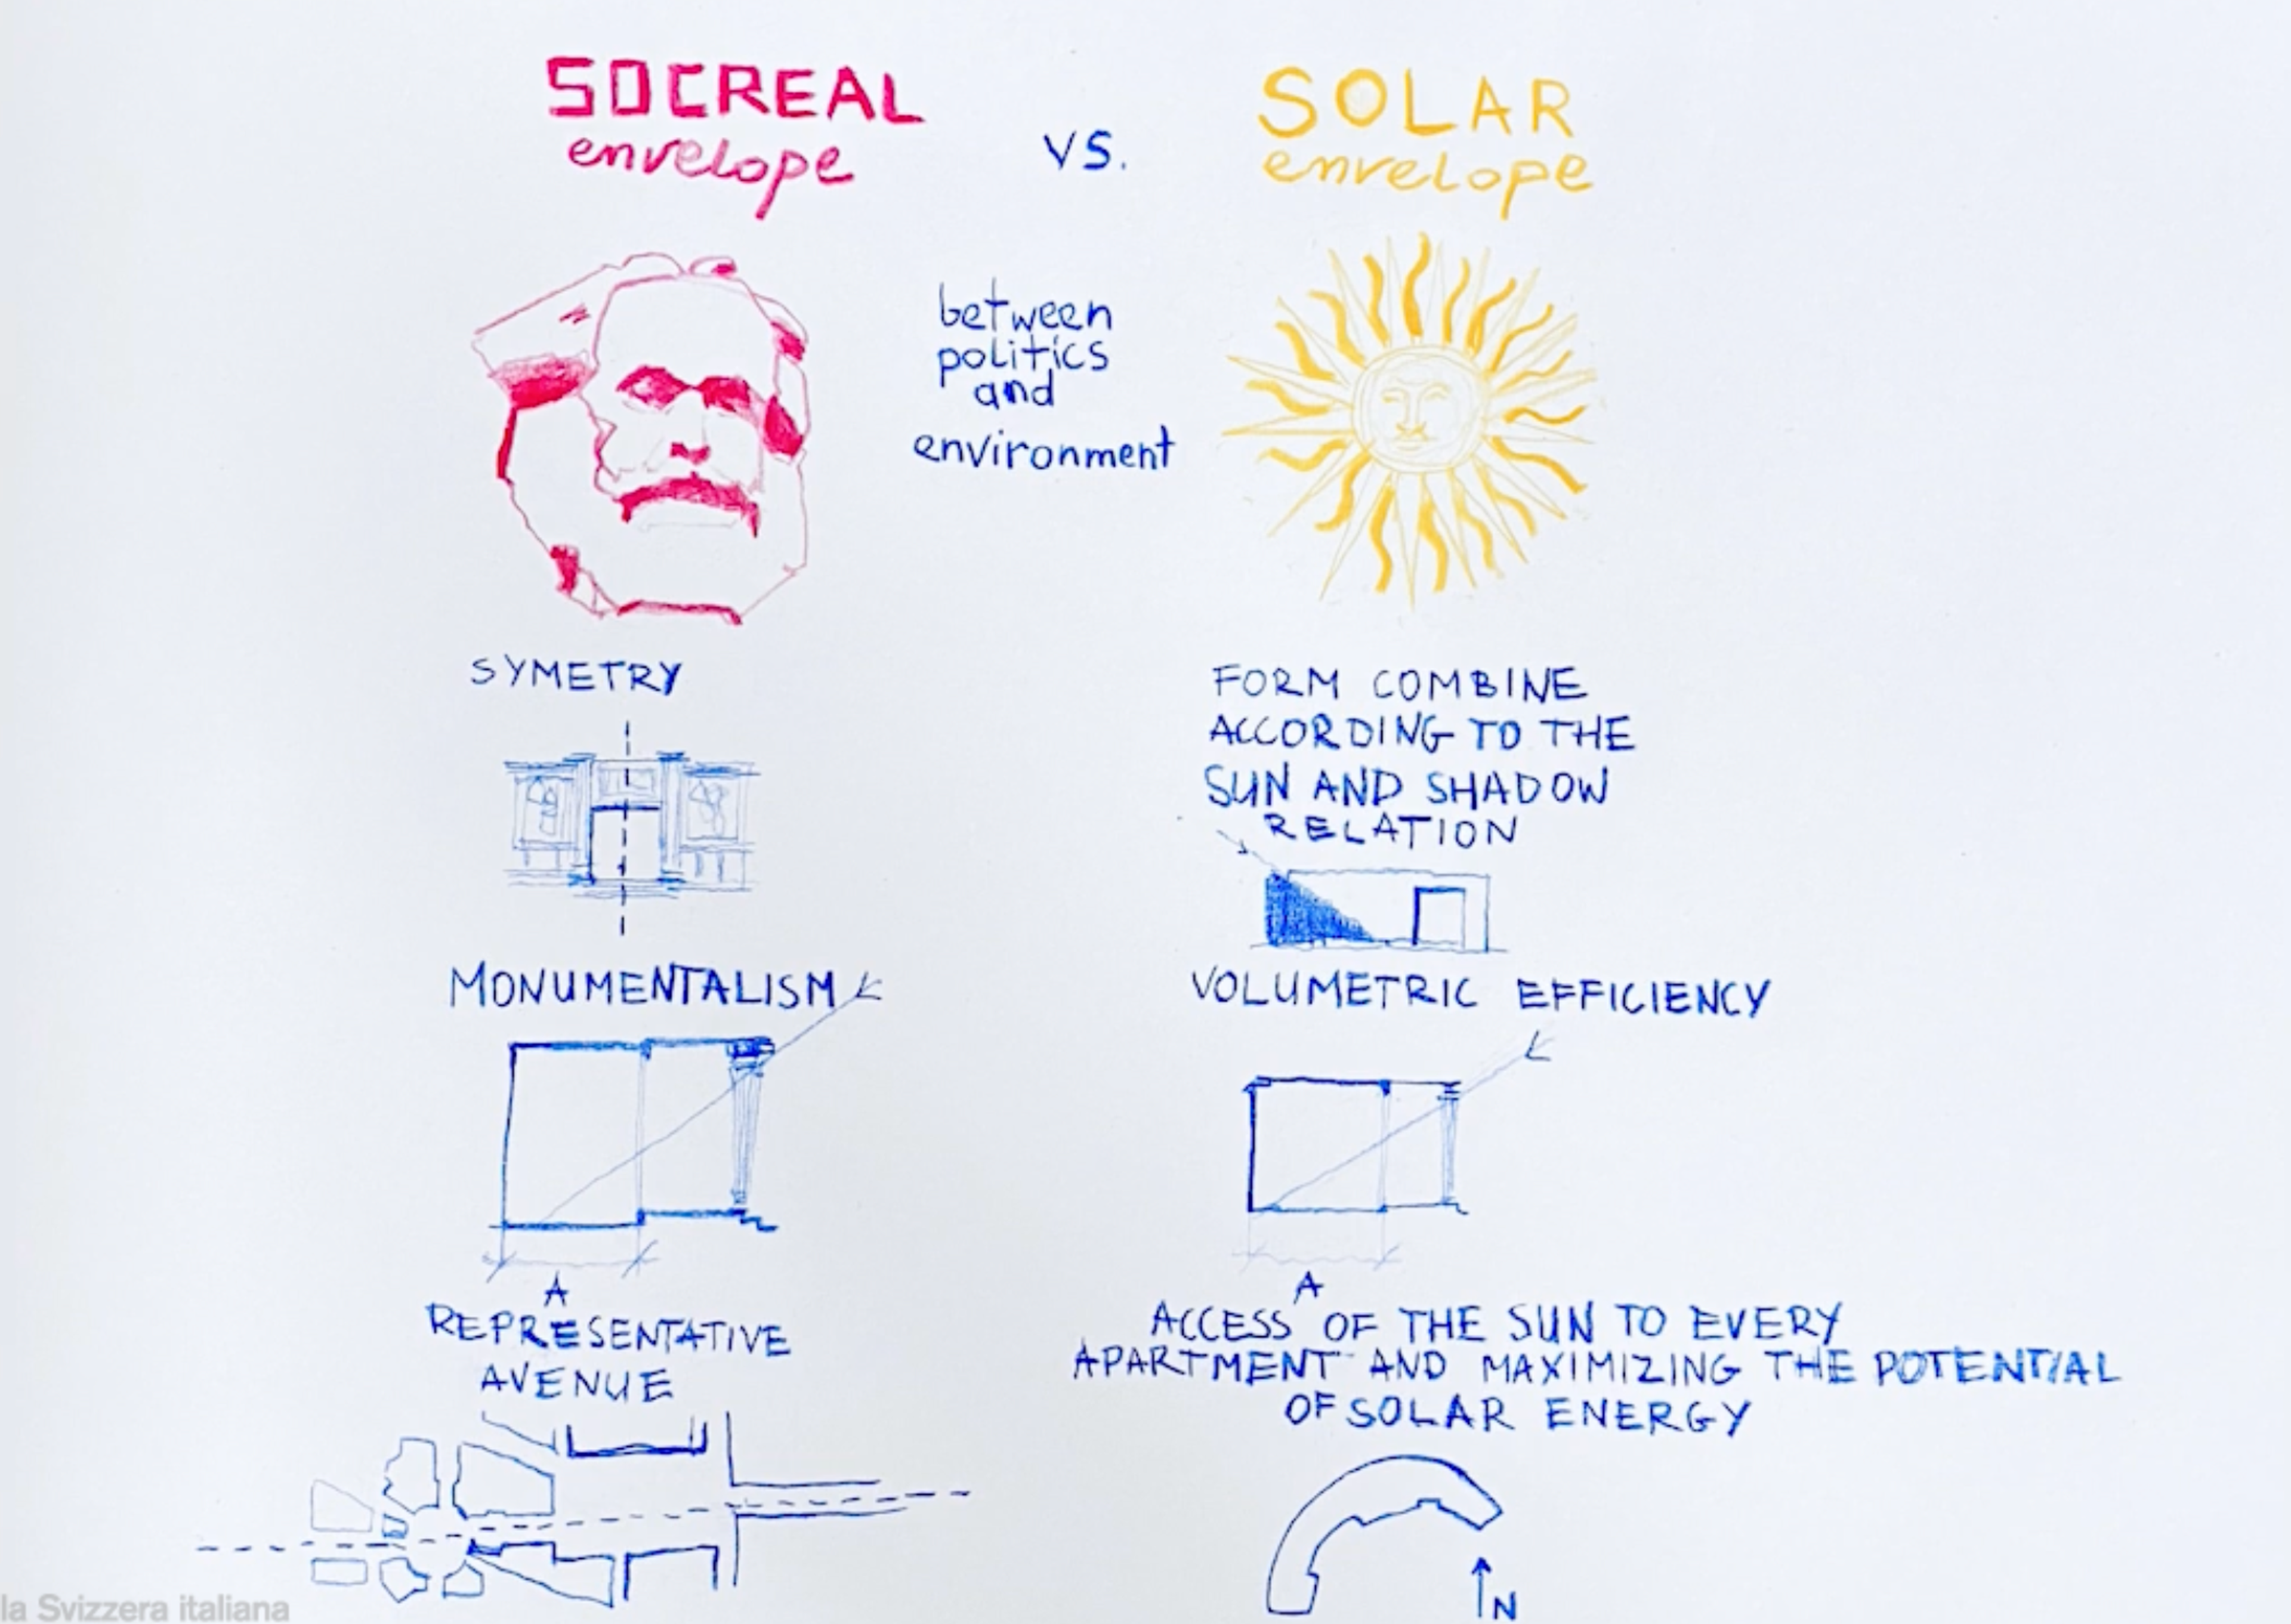 SOCREAL
envelope
vs.
SOLAR
envelope
between
politics
and
environment
SYMETRY
MONUMENTALISM
A
REPRESENTATIVE
AVENUE
FORM COMBINE
ACCORDING TO THE
SUN AND SHADOW
RELATION
VOLUMETRIC EFFICIENCY
A
ACCESS OF THE SUN TO EVERY
APARTMENT AND MAXIMIZING THE POTENTIAL
OF SOLAR ENERGY
N
la Svizzera italiana